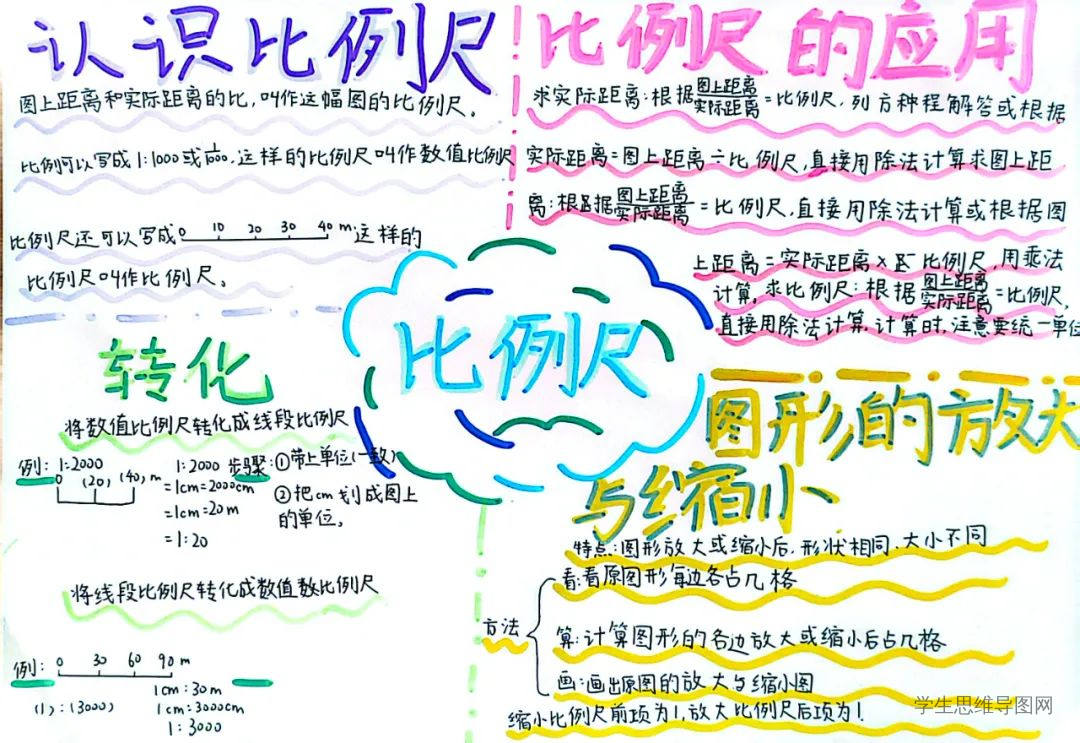 认识比例尺
图上距离和实际距离的比,叫作这幅图的比例尺。
比例可以写成1:1000或1/1000,这样的比例尺叫作数值比例尺
比例尺还可以写成0 10 20 30 40 m这样的
比例尺叫作比例尺。
比例尺的应用
求实际距离:根据图上距离/实际距离=比例尺,列方种程解答或根据
实际距离=图上距离÷比例尺,直接用除法计算求图上距
离:根据图上距离/实际距离=比例尺,直接用除法计算或根据图
上距离=实际距离×比例尺,用乘法
计算,求比例尺:根据图上距离/实际距离=比例尺,
直接用除法计算,计算时,注意要统一单位
比例尺
转化
将数值比例尺转化成线段比例尺
例:1:2000
0 (20) (40) m
1:2000
=1cm=2000cm
=1cm=20m
=1:20
步骤:①带上单位(一致)
②把cm划成图上
的单位。
将线段比例尺转化成数值数比例尺
例:0 30 60 90 m
1cm:30m
(1):(3000)
1cm:3000cm
1:3000
图形的放大
与缩小
特点:图形放大或缩小后,形状相同、大小不同
方法
看:看原图形每边各占几格
算:计算图形的各边放大或缩小后占几格
画:画出原图的放大与缩小图
缩小比例尺前项为1,放大比例尺后项为1!
学生思维导图网